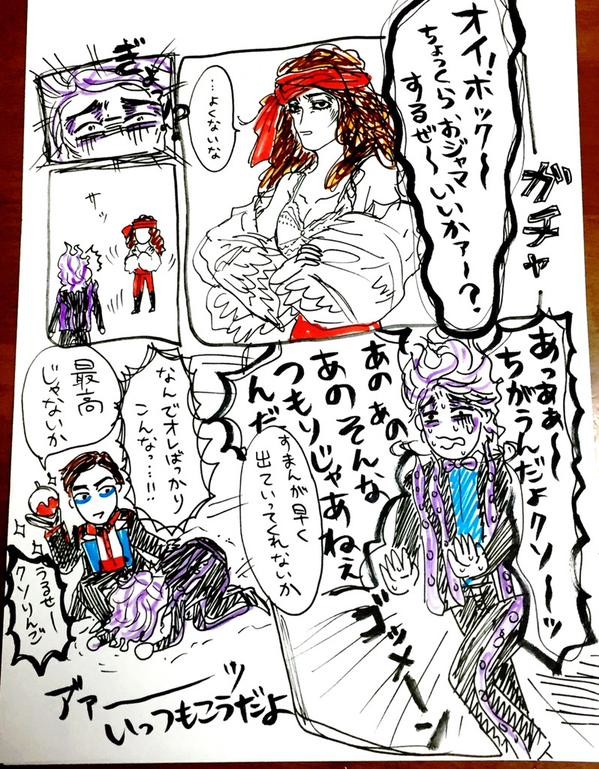 オイ!ホック〜
ちょっくら、おジャマ
するぜ〜いいかァ〜?
ガチャ
…よくないな
ぎょ
サッ
あっあぁ〜
ちがうんだよクソーッ
あの あの
あのそんな
つもりじゃあねぇ
んだ
すまんが早く
出ていってくれないか
ゴッメーン
なんでオレばっかり
こんな…!!
最高
じゃないか
うるせー
クソりんご
アァーーッ
いっつもこうだよ